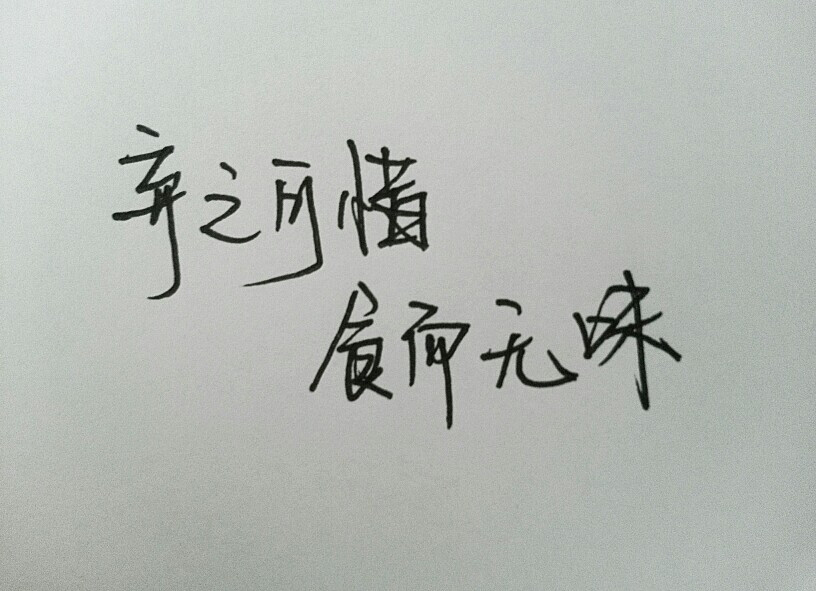 弃之可惜
食而无味